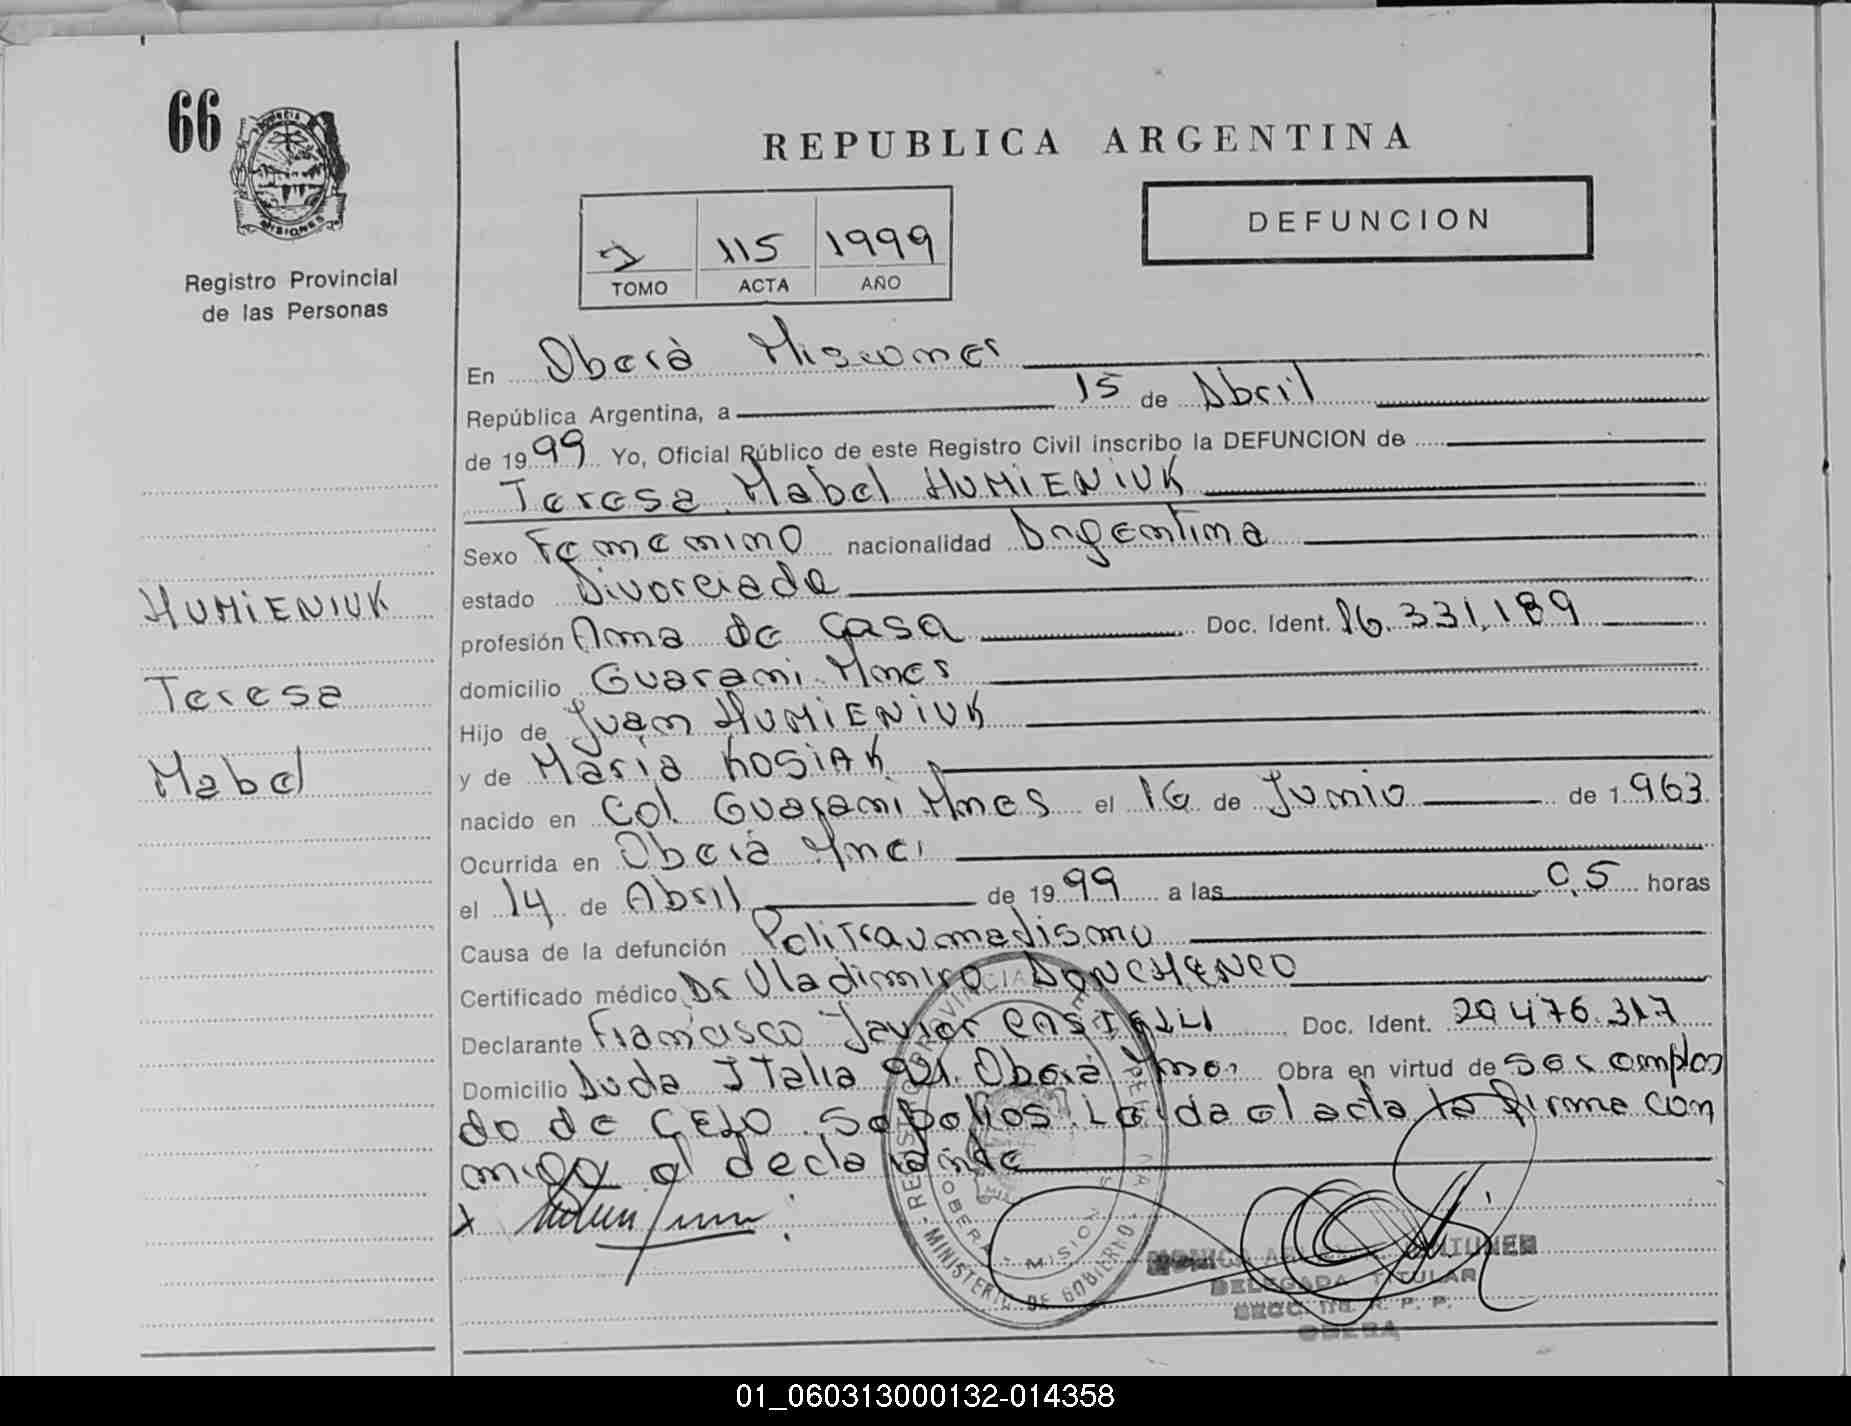 66
PROVINCIA
MISIONES
Registro Provincial
de las Personas
REPUBLICA ARGENTINA
115 1999
TOMO ACTA AÑO
DEFUNCION
En Oberà Misiones
República Argentina, a 15 de Abril
de 1999 Yo, Oficial Público de este Registro Civil inscribo la DEFUNCION de
Teresa Mabel HUMiENiUK
Sexo Femenino nacionalidad Argentina
estado Divorciada
profesión Ama de Casa Doc. Ident. 16.331.189
domicilio Guarani Mnes
Hijo de Juan HUMiENiUK
y de Maria KOSiAK
nacido en Col. Guarani Mnes el 16 de Junio de 1963
Ocurrida en Oberà Mnes
el 14 de Abril de 1999 a las 0,5 horas
Causa de la defunción Politraumadismo
Certificado médico Dr Vladimiro DONCHENCO
Declarante Francisco Javier CASTELLI Doc. Ident. 20.476.317
Domicilio Avda Italia 921. Oberá Mnes Obra en virtud de ser emplea
do de CELO Sepelios. Leida el acta la firma con
migo el declarante
HUMiENIUK
Teresa
Mabel
REGISTRO PROVINCIAL DE
MINISTERIO DE GOBIERNO
OBERA MISIONES
DELEGADA TITULAR
SECC. R. P. P.
OBERA
01_060313000132-014358